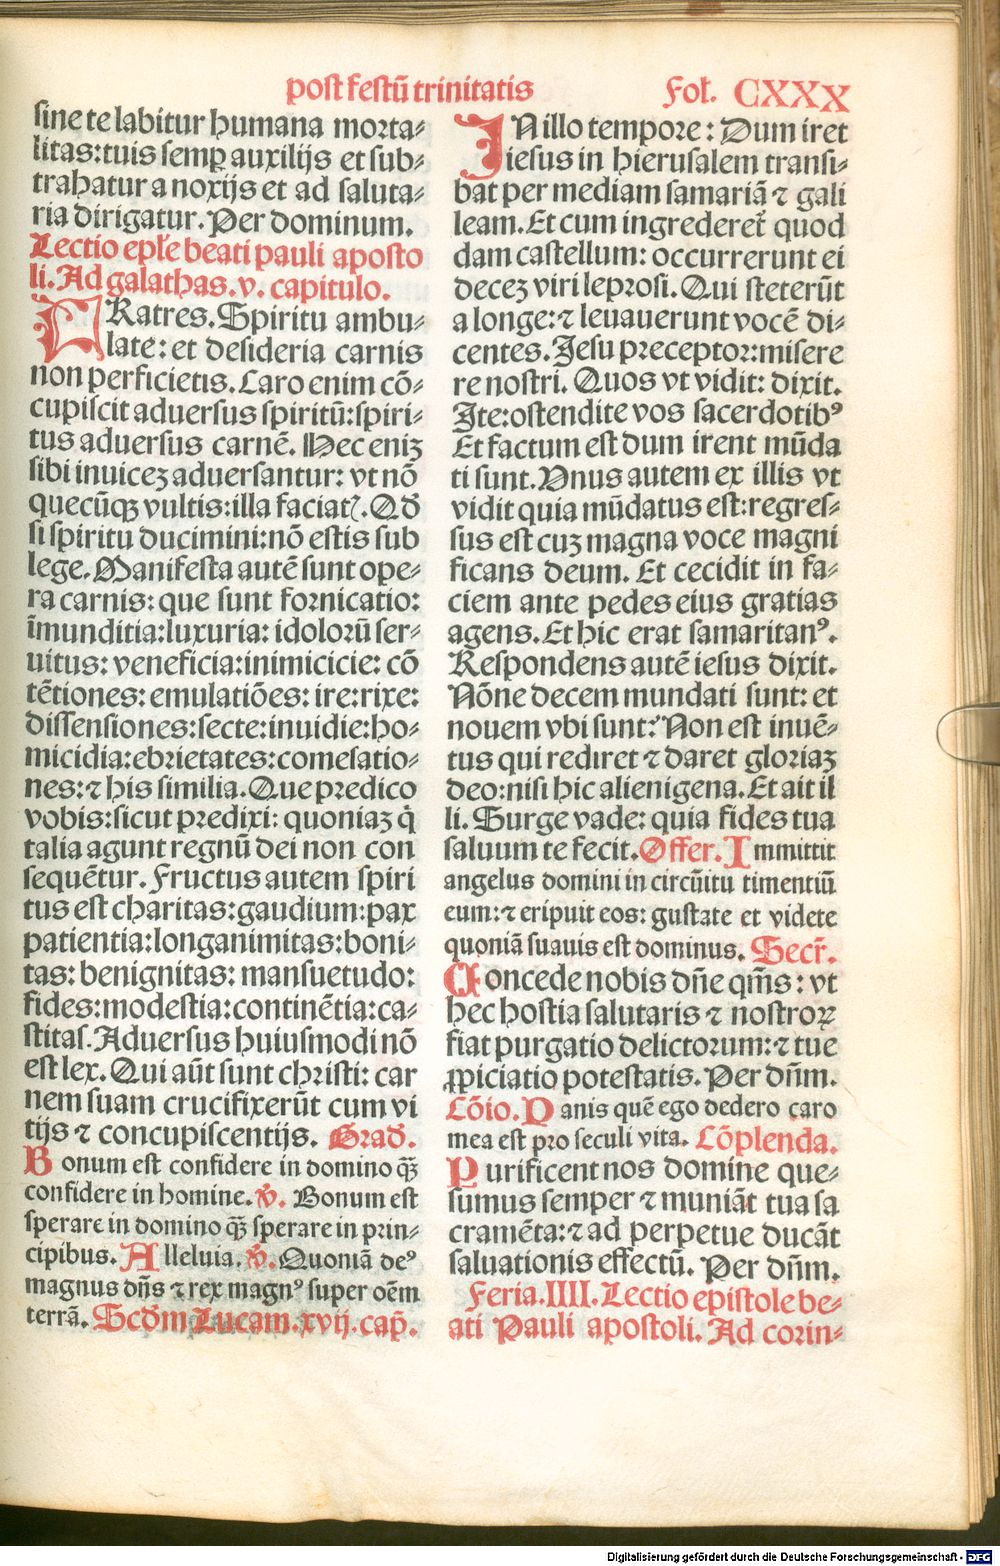 post festū trinitatis
Fol. CXXX
sine te labitur humana morta⸗
litas: tuis semꝑ auxilijs et sub⸗
trahatur a noxijs et ad saluta⸗
ria dirigatur. Per dominum.
Lectio epłe beati pauli aposto
li. Ad galathas. v. capitulo.
FRatres. Spiritu ambu⸗
late: et desideria carnis
non perficietis. Caro enim cō⸗
cupiscit aduersus spiritū: spiri⸗
tus aduersus carnē. Hec eniꝫ
sibi inuiceꝫ aduersantur: vt nō
quecūqꝫ vultis: illa faciatꝭ. Qđ
si spiritu ducimini: nō estis sub
lege. Manifesta autē sunt ope⸗
ra carnis: que sunt fornicatio:
īmunditia: luxuria: idolorū ser⸗
uitus: veneficia: inimicicie: cō
tētiones: emulatiōes: ire: rixe:
dissensiones: secte: inuidie: ho⸗
micidia: ebrietates: comesatio⸗
nes: ⁊ his similia. Que predico
vobis: sicut predixi: quoniaꝫ q̇
talia agunt regnū dei non con
sequētur. Fructus autem spiri
tus est charitas: gaudium: pax
patientia: longanimitas: boni⸗
tas: benignitas: mansuetudo:
fides: modestia: continētia: ca⸗
stitas. Aduersus huiusmodi nō
est lex. Qui aūt sunt christi: car
nem suam crucifixerūt cum vi
tijs ⁊ concupiscentijs. Grad.
Bonum est confidere in domino qꝫ̄
confidere in homine. ℣. Bonum est
sperare in domino qꝫ̄ sperare in prin⸗
cipibus. Alleluia. ℣. Quoniā deꝰ
magnus dn̄s ⁊ rex magnꝰ super oēm
terrā. Scd̄m Lucam. xvij. cap̄.
IN illo tempore: Dum iret
iesus in hierusalem transi⸗
bat per mediam samariā ⁊ gali
leam. Et cum ingrederet̄ quod
dam castellum: occurrerunt ei
deceꝫ viri leprosi. Qui steterūt
a longe: ⁊ leuauerunt vocē di⸗
centes. Jesu preceptor: misere
re nostri. Quos vt vidit: dixit.
Ite: ostendite vos sacerdotibꝰ
Et factum est dum irent mūda
ti sunt. Vnus autem ex illis vt
vidit quia mūdatus est: regres⸗
sus est cuꝫ magna voce magni
ficans deum. Et cecidit in fa⸗
ciem ante pedes eius gratias
agens. Et hic erat samaritanꝰ.
Respondens autē iesus dixit.
Nōne decem mundati sunt: et
nouem vbi sunt? Non est inuē⸗
tus qui rediret ⁊ daret gloriaꝫ
deo: nisi hic alienigena. Et ait il
li. Surge vade: quia fides tua
saluum te fecit. Offer. Immittit
angelus domini in circūitu timentiū
eum: ⁊ eripuit eos: gustate et videte
quoniā suauis est dominus. Secr̄.
Concede nobis dn̄e qm̄s: vt
hec hostia salutaris ⁊ nostroꝝ
fiat purgatio delictorum: ⁊ tue
ꝓpiciatio potestatis. Per dn̄m.
Cōio. Panis quē ego dedero caro
mea est pro seculi vita. Cōplenda.
Purificent nos domine que⸗
sumus semper ⁊ muniāt tua sa
cramēta: ⁊ ad perpetue ducāt
saluationis effectū. Per dn̄m.
Feria. IIII. Lectio epistole be⸗
ati Pauli apostoli. Ad corin⸗
Digitalisierung gefördert durch die Deutsche Forschungsgemeinschaft - DFG